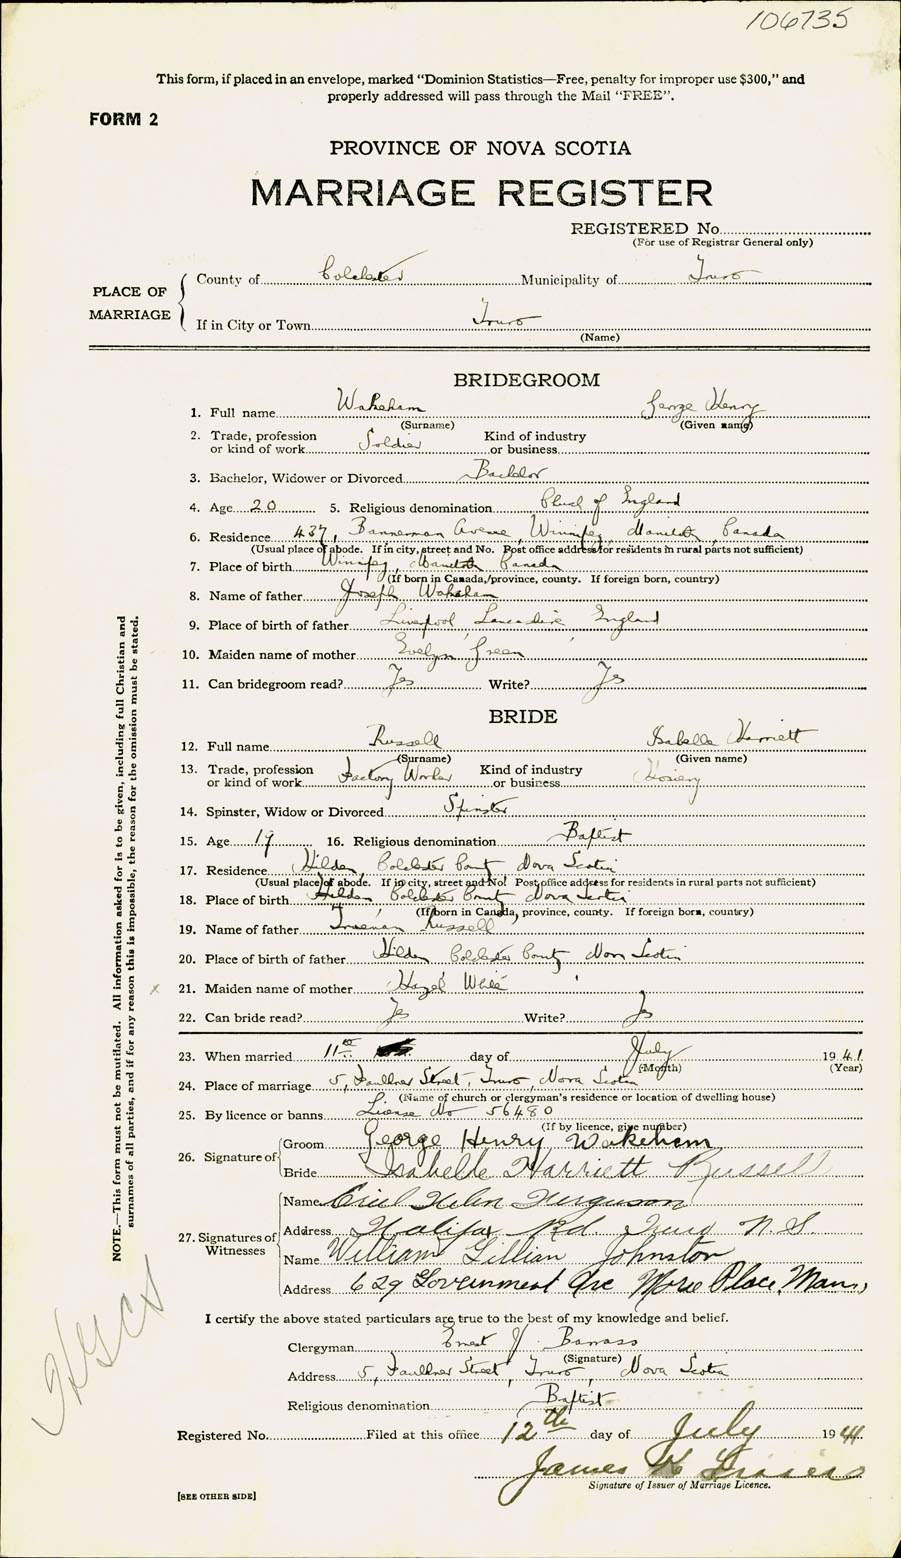 106735
This form, if placed in an envelope, marked "Dominion Statistics—Free, penalty for improper use $300," and
properly addressed will pass through the Mail "FREE".
FORM 2
PROVINCE OF NOVA SCOTIA
MARRIAGE REGISTER
REGISTERED No.
(For use of Registrar General only)
PLACE OF MARRIAGE
County of Colchester Municipality of Truro
If in City or Town Truro
(Name)
BRIDEGROOM
1. Full name Wakeham George Henry
(Surname) (Given name)
2. Trade, profession or kind of work Soldier Kind of industry or business
3. Bachelor, Widower or Divorced Bachelor
4. Age 20 5. Religious denomination Church of England
6. Residence 437, Bannerman Avenue, Winnipeg, Manitoba, Canada
(Usual place of abode. If in city, street and No. Post office address for residents in rural parts not sufficient)
7. Place of birth Winnipeg, Manitoba Canada
(If born in Canada, province, county. If foreign born, country)
8. Name of father Joseph Wakeham
9. Place of birth of father Liverpool, Lancashire, England
10. Maiden name of mother Evelyn Green
11. Can bridegroom read? Yes Write? Yes
BRIDE
12. Full name Russell Isabelle Harriett
(Surname) (Given name)
13. Trade, profession or kind of work Factory Worker Kind of industry or business Hosiery
14. Spinster, Widow or Divorced Spinster
15. Age 19 16. Religious denomination Baptist
17. Residence Hilden, Colchester County Nova Scotia
(Usual place of abode. If in city, street and No. Post office address for residents in rural parts not sufficient)
18. Place of birth Hilden Colchester County Nova Scotia
(If born in Canada, province, county. If foreign born, country)
19. Name of father Freeman Russell
20. Place of birth of father Hilden Colchester County Nova Scotia
x 21. Maiden name of mother Hazel White
22. Can bride read? Yes Write? Yes
23. When married 11th day of July 1941
(Month) (Year)
24. Place of marriage 5, Faulkner Street, Truro, Nova Scotia
(Name of church or clergyman's residence or location of dwelling house)
25. By licence or banns License No 56480
(If by licence, give number)
26. Signature of Groom George Henry Wakeham
Bride Isabelle Harriett Russell
27. Signatures of Witnesses
Name Helen Ferguson
Address Halifax Rd. Truro N.S
Name William Lillian Johnston
Address 629 Government Ave Place, Man,
I certify the above stated particulars are true to the best of my knowledge and belief.
Clergyman Ernest J. Barrass
(Signature)
Address 5, Faulkner Street, Truro, Nova Scotia
Religious denomination Baptist
Registered No. Filed at this office 12th day of July 1941
James K
Signature of Issuer of Marriage Licence.
[SEE OTHER SIDE]
NOTE.—This form must not be mutilated. All information asked for is to be given, including full Christian and
surnames of all parties, and if for any reason this is impossible, the reason for the omission must be stated.